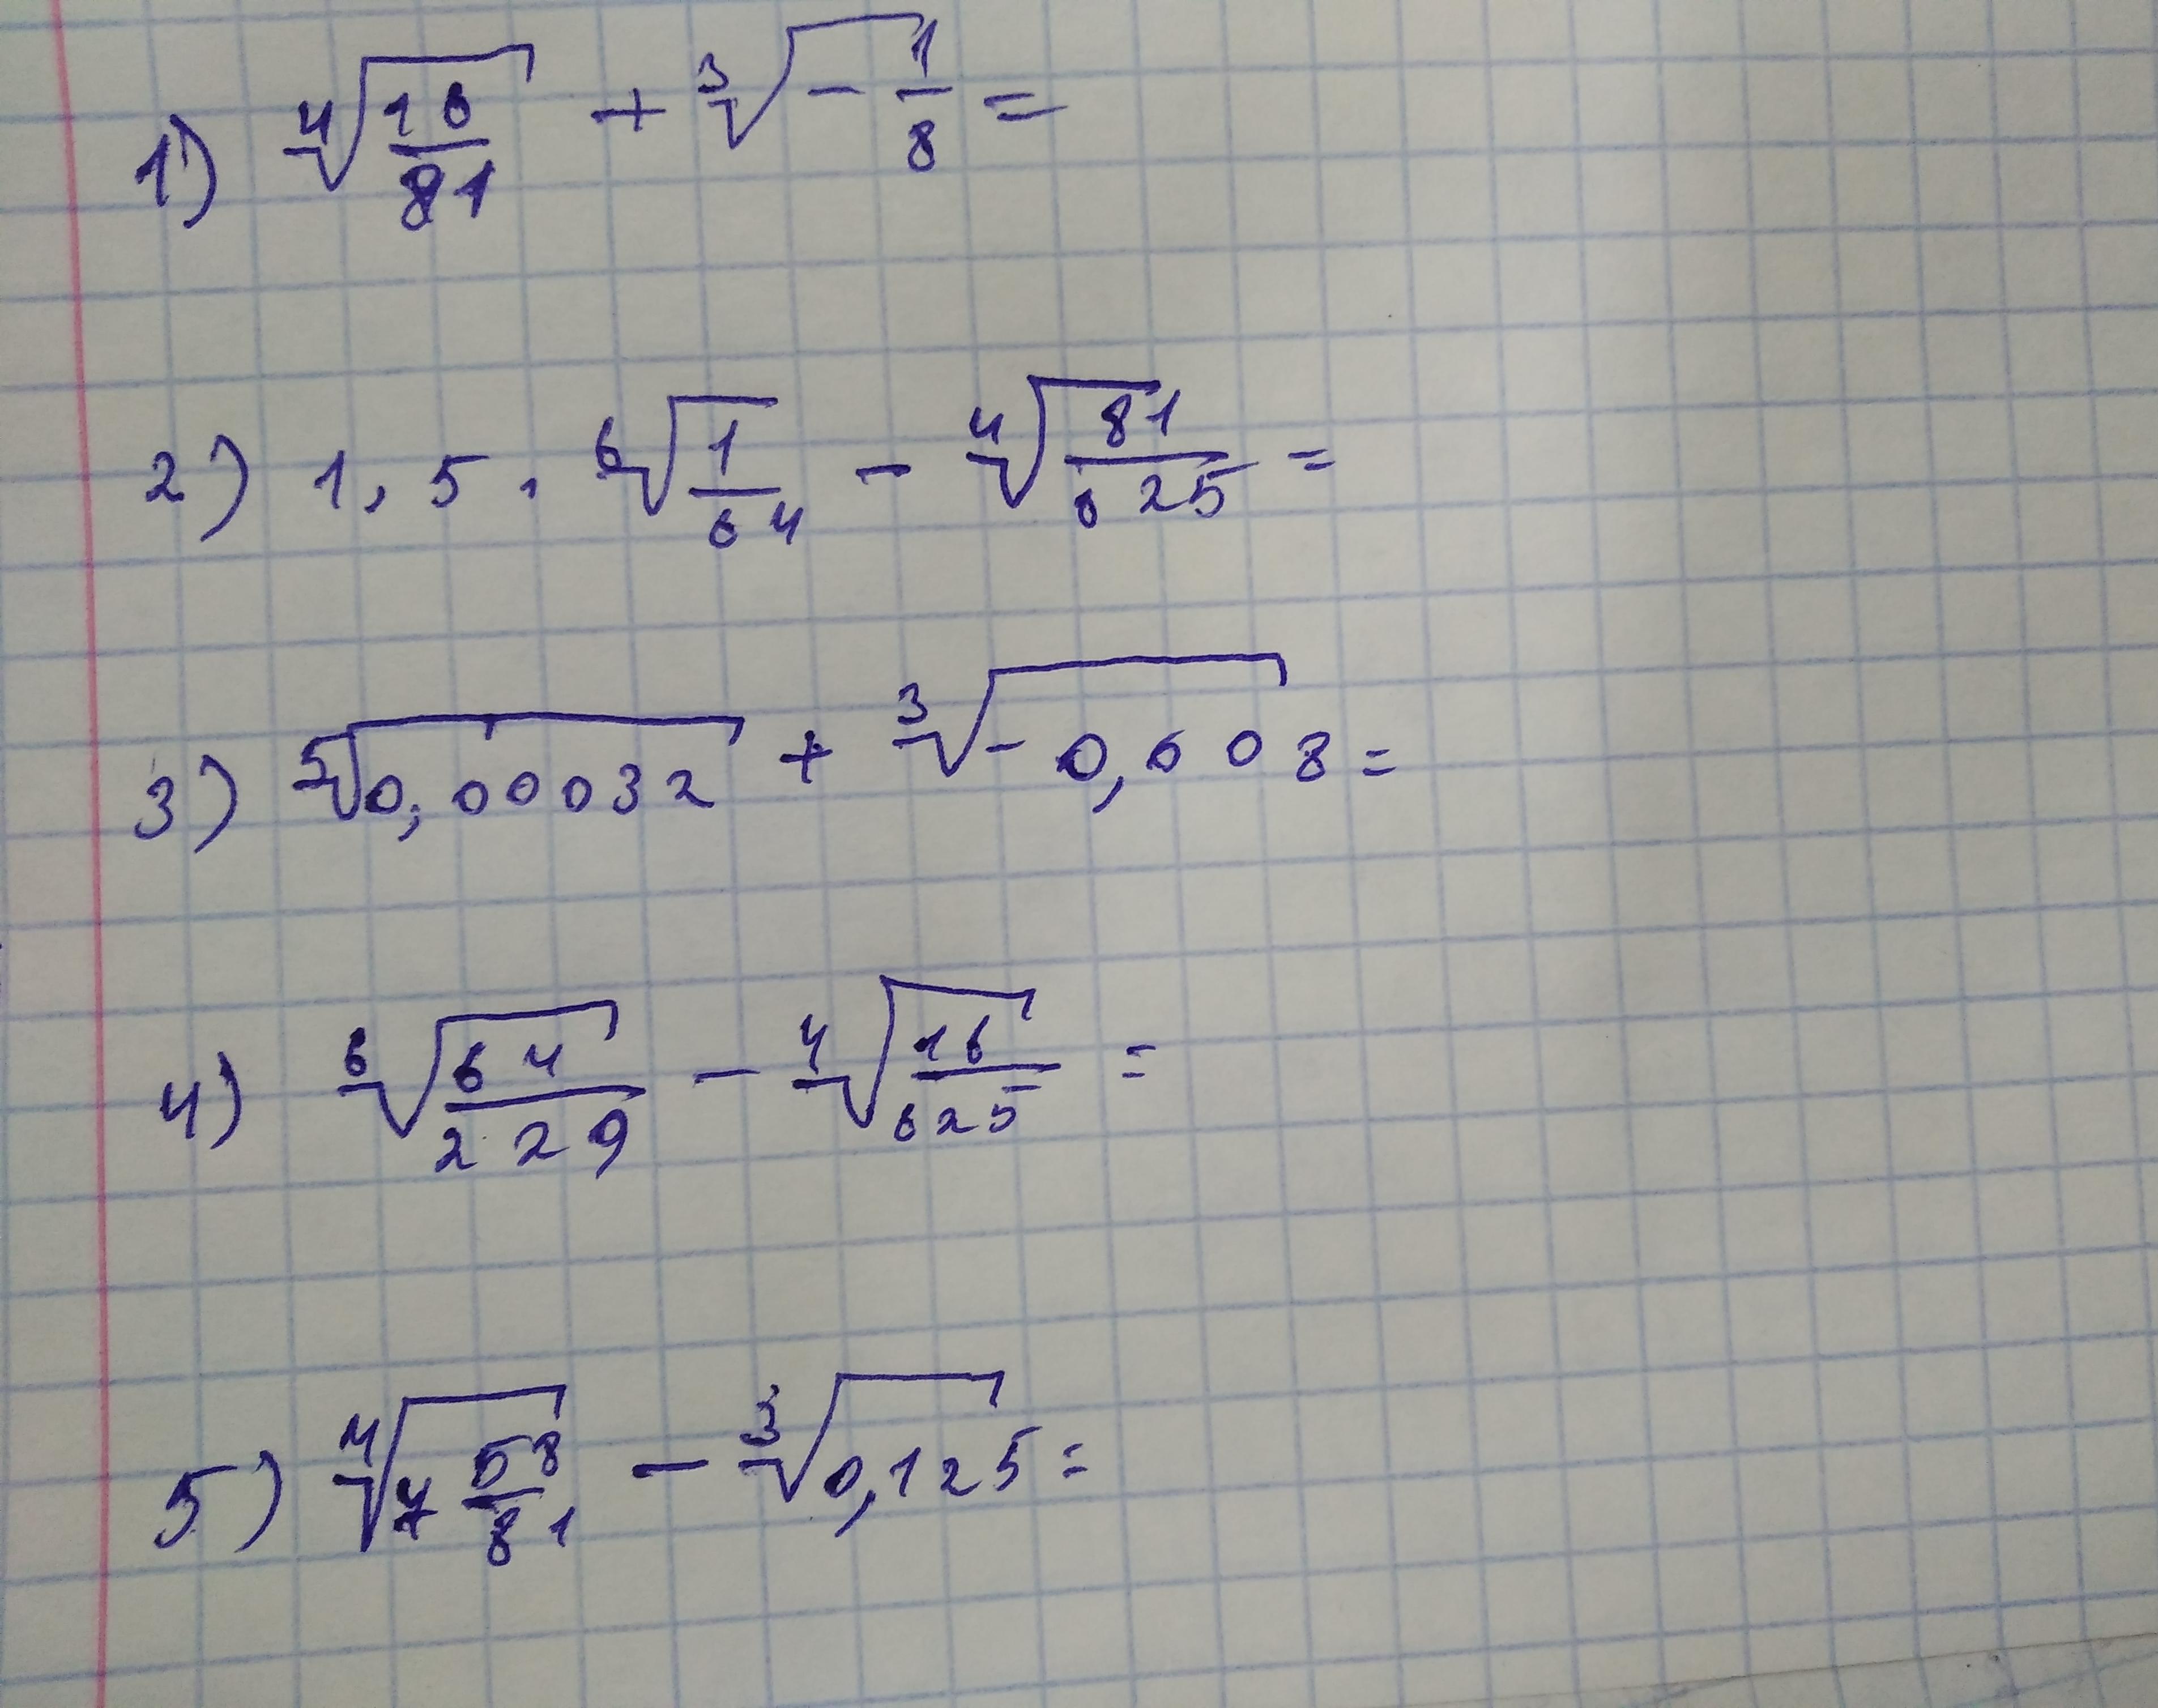 1) ⁴√(16/81) + ³√(-1/8) =
2) 1,5 · ⁶√(1/64) - ⁴√(81/625) =
3) ⁵√(0,00032) + ³√(-0,008) =
4) ⁶√(64/229) - ⁴√(16/625) =
5) ⁴√(7 58/81) - ³√(0,125) =